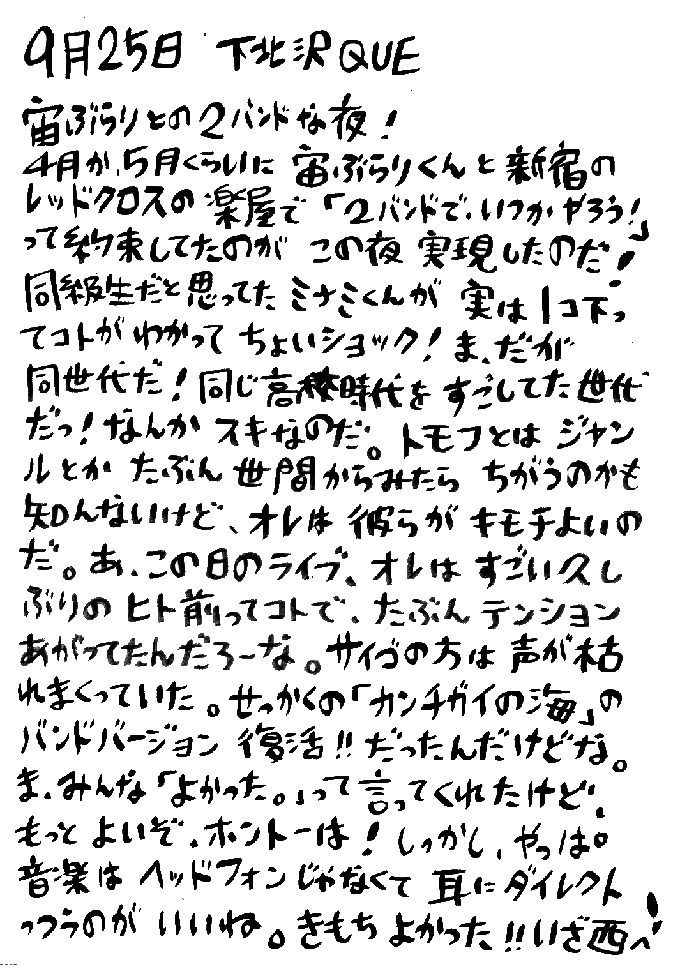 9月25日 下北沢QUE
宙ぶらりとの2バンドな夜！
4月か、5月くらいに 宙ぶらりくんと新宿の
レッドクロスの楽屋で「2バンドで、いつかやろう！」
って約束してたのが この夜 実現したのだ！
同級生だと思ってた ミナミくんが 実は1コ下っ
てコトがわかって ちょいショック！ま、だが
同世代だ！同じ高校時代を すごしてた世代
だっ！なんか スキなのだ。トモフとは ジャン
ルとか たぶん 世間からみたら ちがうのかも
知んないけど、オレは 彼らが キモチよいの
だ。あ、この日のライブ、オレは すごい久し
ぶりの ヒト前ってコトで、たぶん テンション
あがってたんだろーな。サイゴの方は 声が枯
れまくっていた。せっかくの「カンチガイの海」の
バンドバージョン 復活!! だったんだけどな。
ま、みんな「よかった。」って言ってくれたけど、
もっと よいぞ、ホントーは！しっかし、やっぱ
音楽は ヘッドフォンじゃなくて 耳にダイレクト
っつうのが いいね。きもち よかった!! いざ西へ！